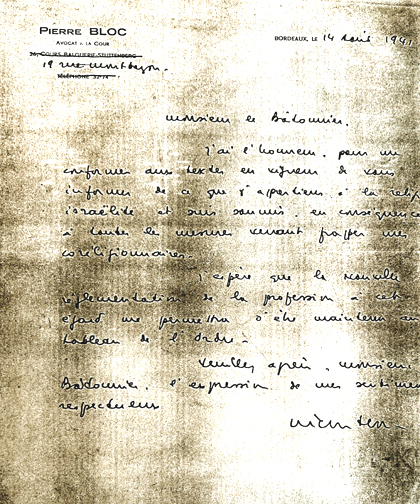 PIERRE BLOC
AVOCAT À LA COUR
36, COURS BALGUERIE-STUTTENBERG
19 rue Montbazon.
TÉLÉPHONE 32-14
BORDEAUX, LE 14 Août 1941
Monsieur le Bâtonnier,
J'ai l'honneur, pour me
conformer aux textes en vigueur de vous
informer de ce que j'appartiens à la reli
israélite et suis soumis, en conséquenc
à toutes les mesures venant frapper mes
coreligionnaires.
J'espère que la nouvelle
réglementation de la profession à cet
égard me permettra d'être maintenu au
tableau de l'Ordre.
Veuillez agréer, Monsieur
Bâtonnier, l'expression de mes sentimen
respectueux